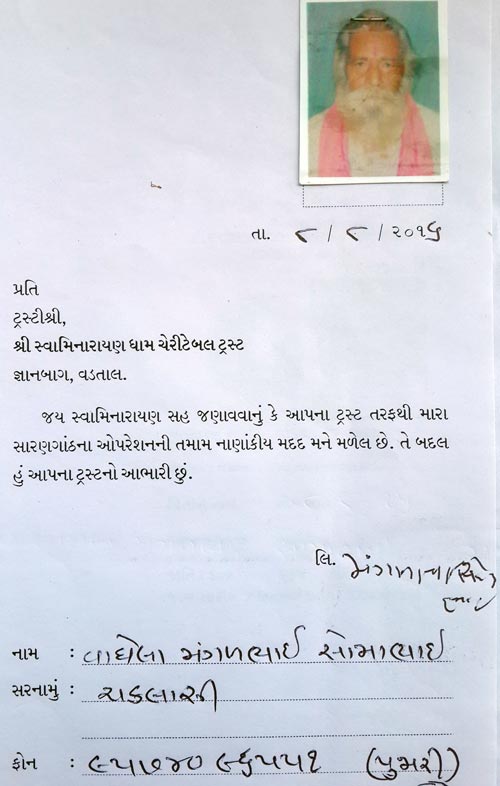 તા. ૮ / ૮ / ૨૦૧૬
પ્રતિ
ટ્રસ્ટીશ્રી,
શ્રી સ્વામિનારાયણ ધામ ચેરીટેબલ ટ્રસ્ટ
જ્ઞાનબાગ, વડતાલ.
જય સ્વામિનારાયણ સહ જણાવવાનું કે આપના ટ્રસ્ટ તરફથી મારા
સારણગાંઠના ઓપરેશનની તમામ નાણાંકીય મદદ મને મળેલ છે. તે બદલ
હું આપના ટ્રસ્ટનો આભારી છું.
લિ.
નામ : વાઘેલા મંગળભાઈ સોમાભાઈ
સરનામું : ચકલાસી
ફોન :